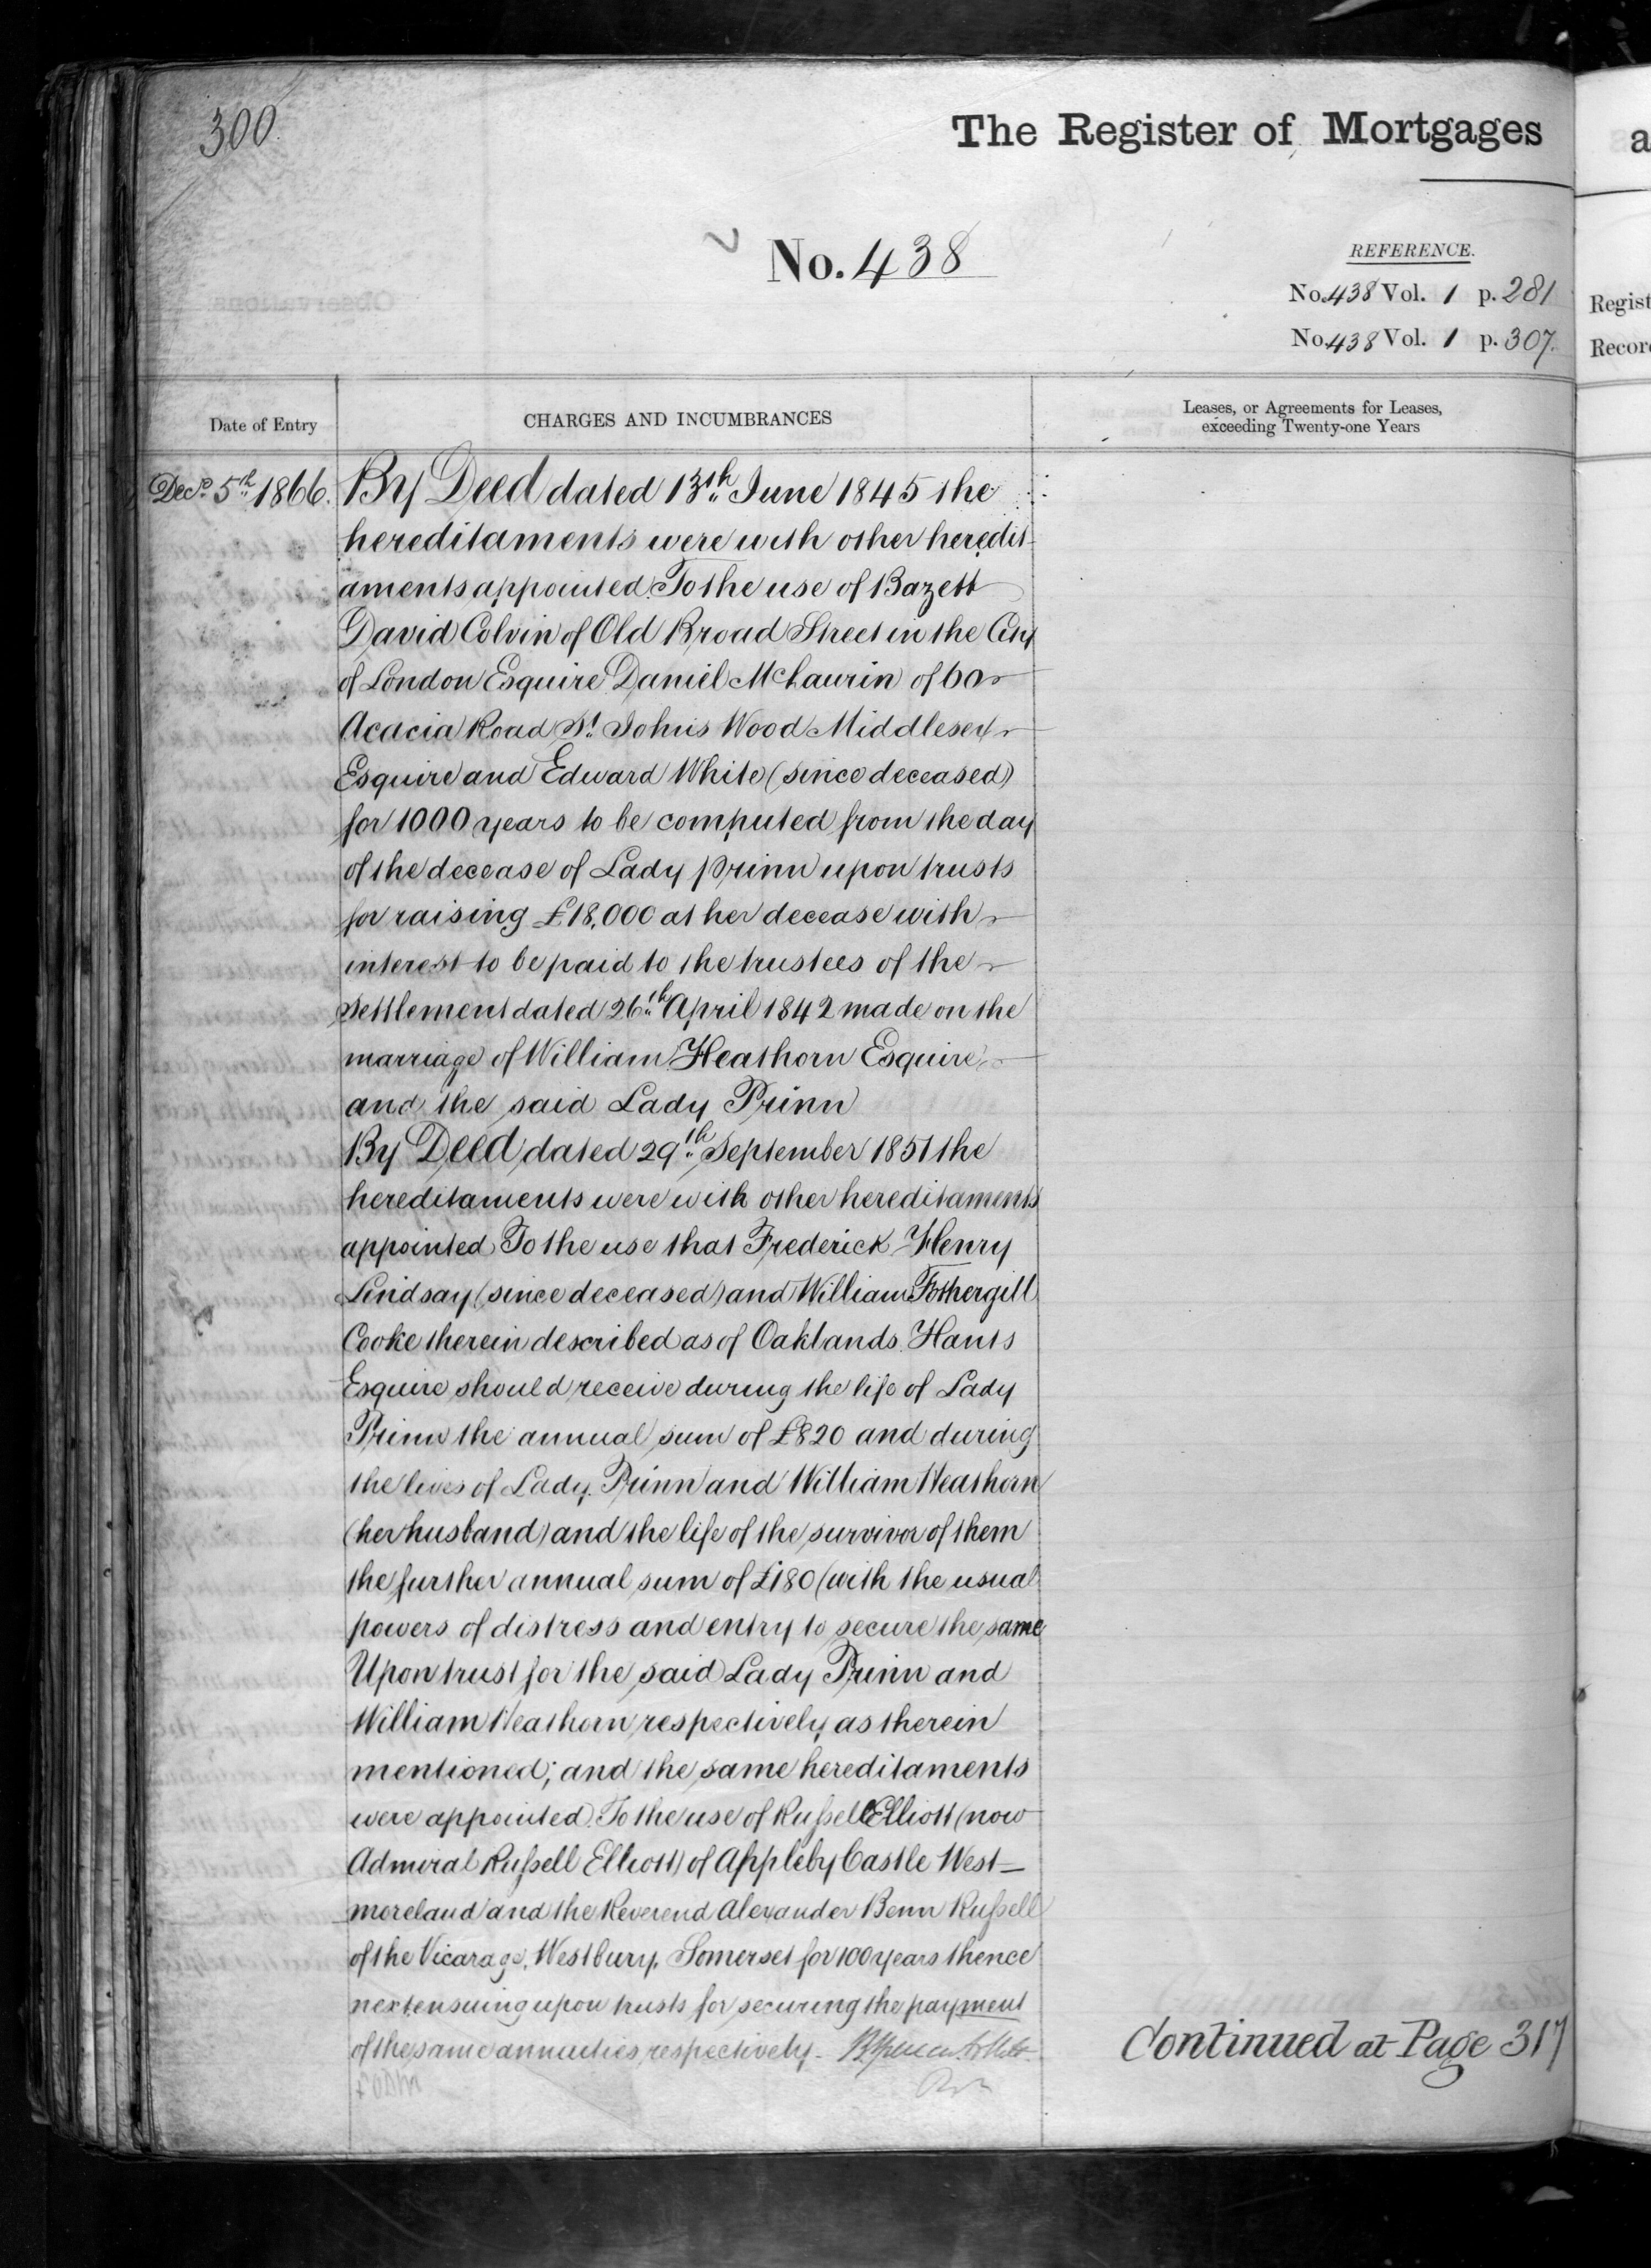 300.
The Register of Mortgages
No. 438
REFERENCE.
No. 438 Vol. 1 p. 281
No. 438 Vol. 1 p. 307.
Regist
Record
Date of Entry
CHARGES AND INCUMBRANCES
Leases, or Agreements for Leases,
exceeding Twenty-one Years
Decr. 5th 1866. By Deed dated 13th June 1845 the
hereditaments were with other heredit-
aments appointed To the use of Bazett
David Colvin of Old Broad Street in the City
of London Esquire Daniel McLaurin of 60
Acacia Road St. Johns Wood Middlesex
Esquire and Edward White (since deceased)
for 1000 years to be computed from the day
of the decease of Lady Prinn upon trusts
for raising £18,000 at her decease with
interest to be paid to the trustees of the
Settlement dated 26th April 1842 made on the
marriage of William Heathorn Esquire
and the said Lady Prinn
By Deed dated 29th September 1851 the
hereditaments were with other hereditaments
appointed To the use that Frederick Henry
Lindsay (since deceased) and William Fothergill
Cooke therein described as of Oaklands Hants
Esquire should receive during the life of Lady
Prinn the annual sum of £820 and during
the lives of Lady Prinn and William Heathorn
(her husband) and the life of the survivor of them
the further annual sum of £180 (with the usual
powers of distress and entry to secure the same
Upon trust for the said Lady Prinn and
William Heathorn respectively as therein
mentioned; and the same hereditaments
were appointed To the use of Russell Elliott (now
Admiral Russell Elliott) of Appleby Castle West-
moreland and the Reverend Alexander Benn Russell
of the Vicarage, Westbury, Somerset for 100 years thence
next ensuing upon trusts for securing the payment
of the same annuities respectively.
Continued at Page 317